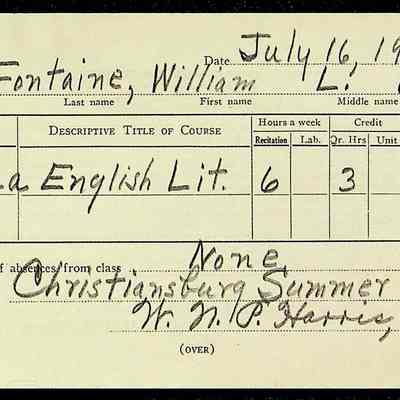 Date July 16, 19
Fontaine, William L.
Last name First name Middle name
DESCRIPTIVE TITLE OF COURSE Hours a week Credit
Recitation Lab. Qr. Hrs Unit
a English Lit. 6 3
of absences from class None
Christiansburg Summer
W. N. P. Harris,
(OVER)